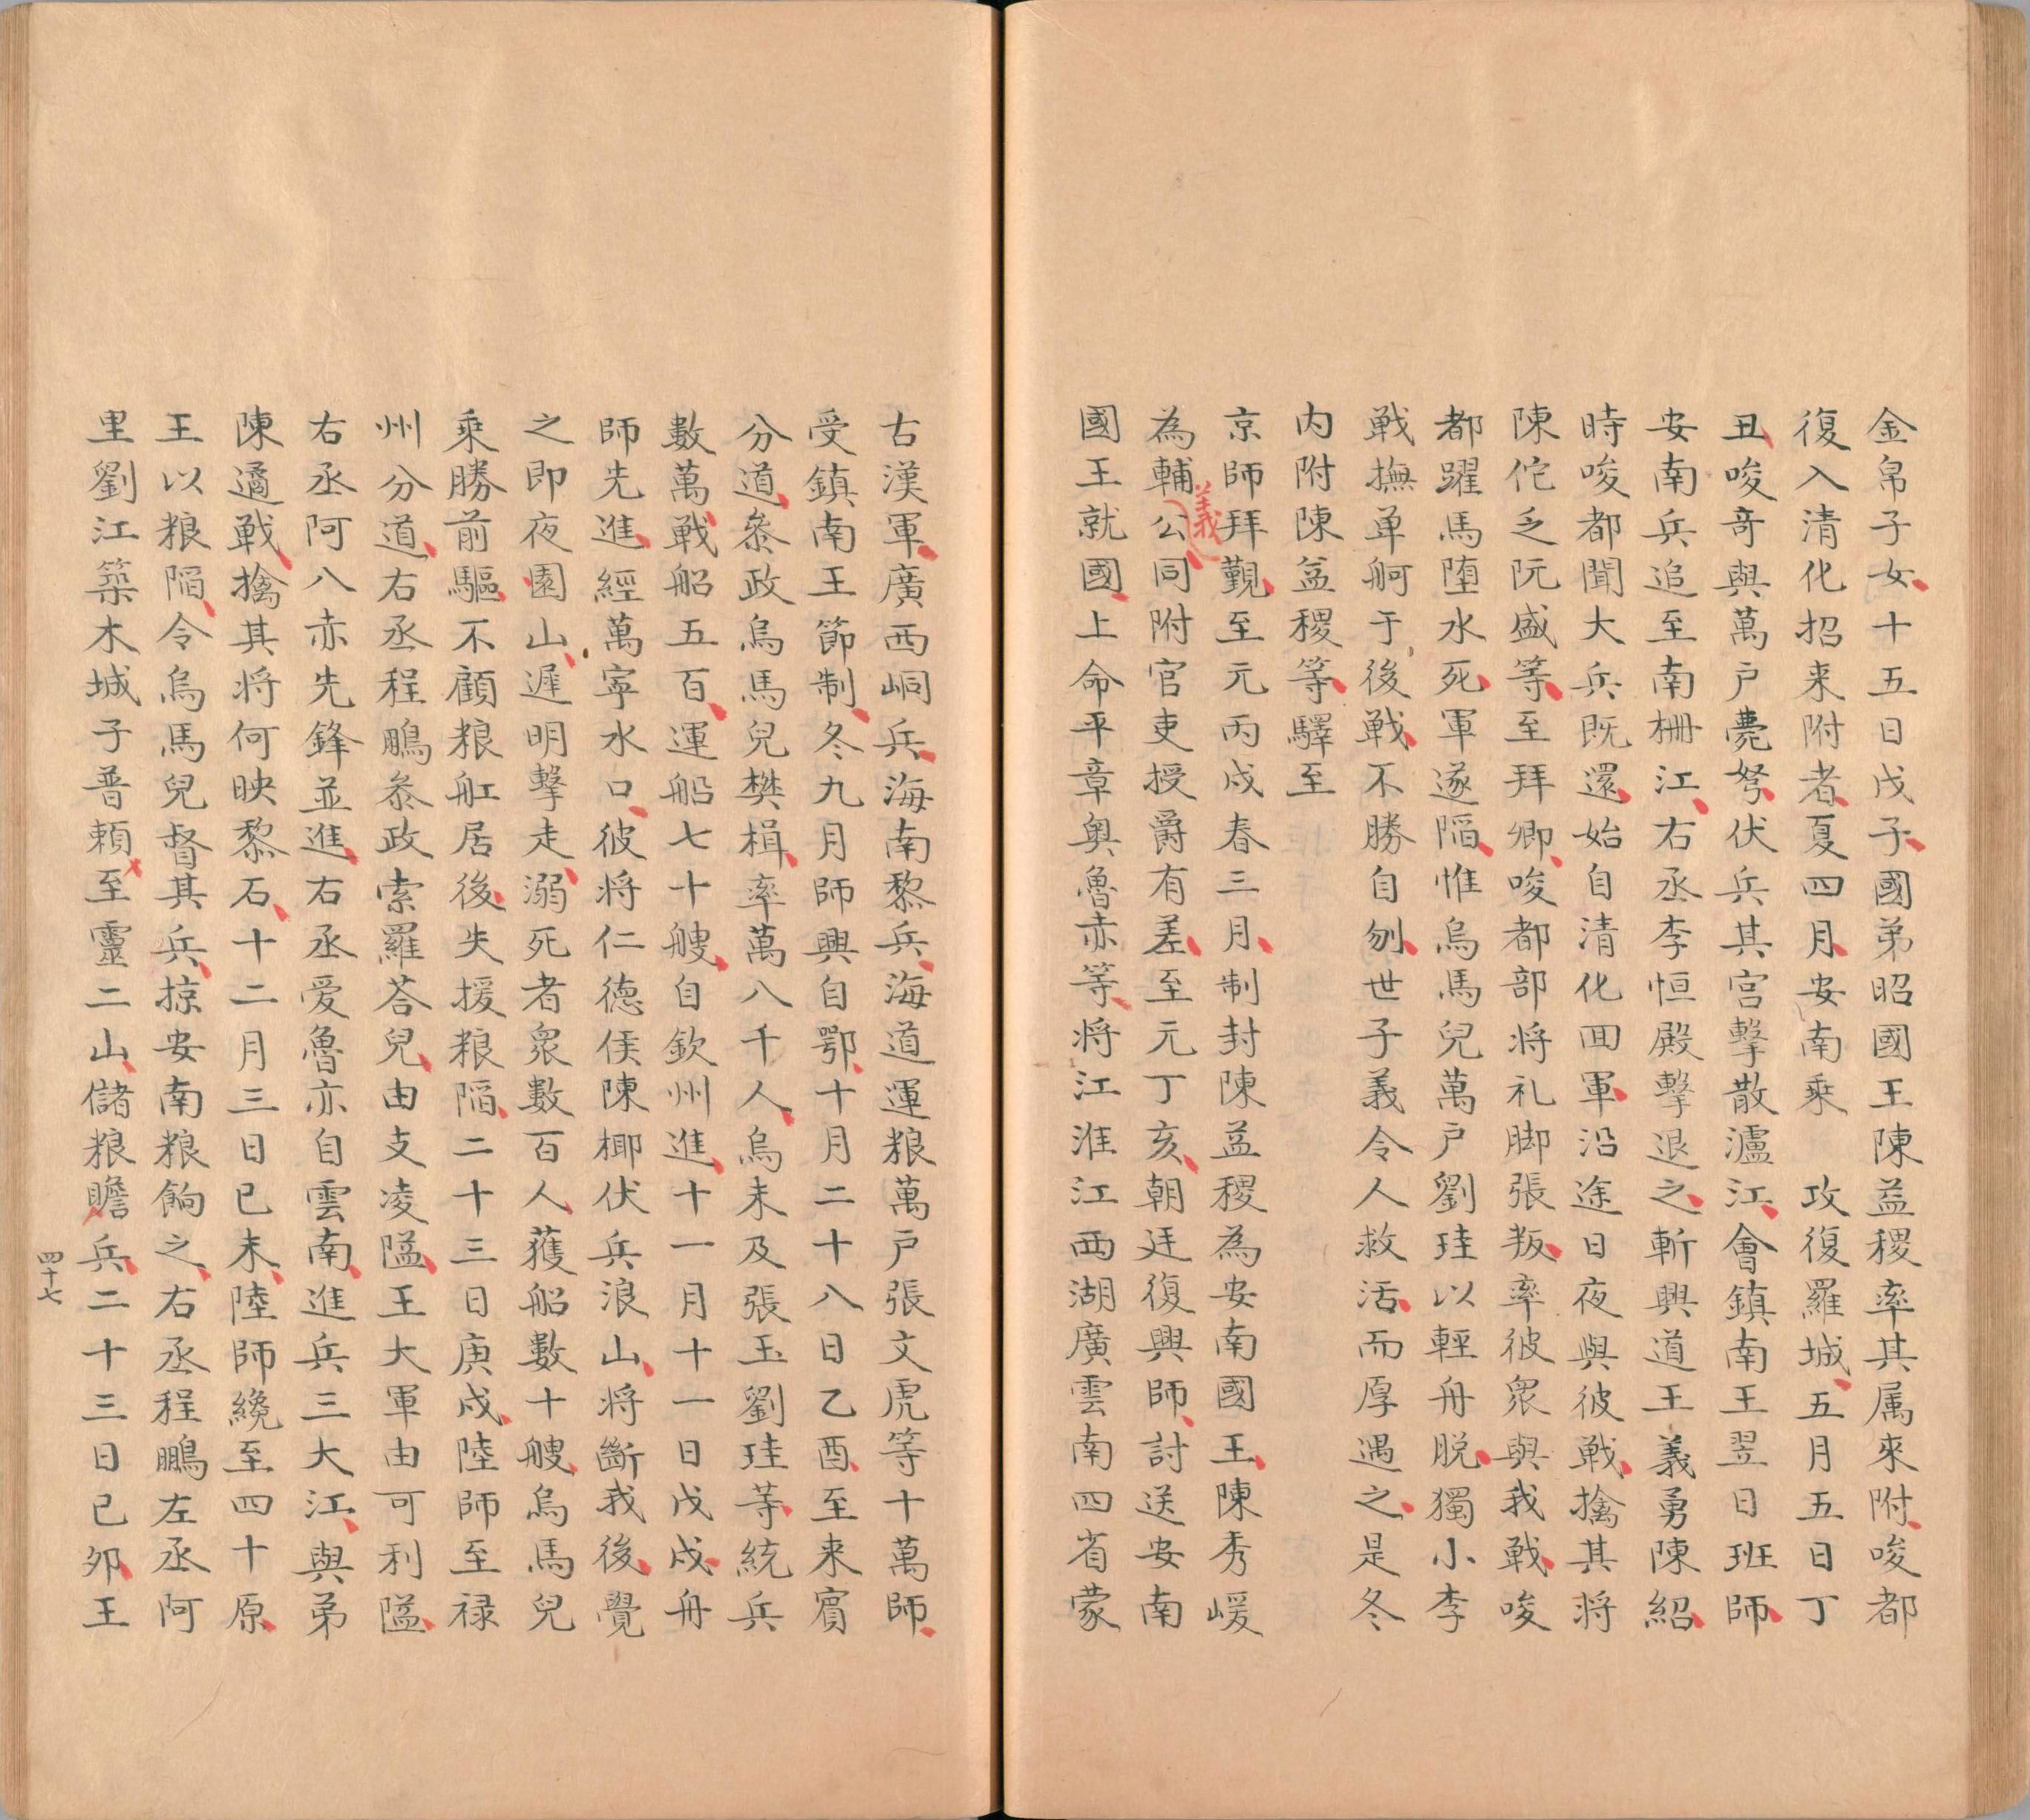 金帛子女十五日戊子國弟昭國王陳益稷率其属來附唆都
復入清化招来附者夏四月安南乘　攻復羅城五月五日丁
丑唆奇與萬戶薨弩伏兵其宮擊散瀘江會鎮南王翌日班師
安南兵追至南柵江右丞李恒殿擊退之斬興道王義勇陳紹
時唆都聞大兵既還始自清化回軍沿途日夜與彼戰擒其将
陳佗乏阮盛等至拜卿唆都部将礼脚張叛率彼衆與我戰唆
都躍馬堕水死軍遂䧟惟烏馬兒萬戶劉珪以輕舟脫獨小李
戰撫单舸于後戰不勝自刎世子義令人救活而厚遇之是冬
内附陳益稷等驛至
京師拜觐至元丙戌春三月制封陳益稷為安南國王陳秀嵈
為輔義公同附官吏授爵有差至元丁亥朝廷復興師討送安南
國王就國上命平章奥魯赤等将江淮江西湖廣雲南四省蒙
古漢軍廣西峒兵海南黎兵海道運粮萬戶張文虎等十萬師
受鎮南王節制冬九月師興自鄂十月二十八日乙酉至来賓
分道叅政烏馬兒樊楫率萬八千人烏未及張玉劉珪等統兵
數萬戰船五百運船七十艘自欽州進十一月十一日戊戌舟
師先進經萬寧水口彼将仁德侯陳椰伏兵浪山将斷我後覺
之即夜圍山遲明擊走溺死者衆數百人獲船數十艘烏馬兒
乘勝前驅不顧粮舡居後失援粮䧟二十三日庚戌陸師至禄
州分道右丞程鵬叅政索羅荅兒由支凌隘王大軍由可利隘
右丞阿八赤先鋒並進右丞爱魯亦自雲南進兵三大江與弟
陳遹戰擒其将何映黎石十二月三日己未陸師纔至四十原
王以粮䧟令烏馬兒督其兵掠安南粮餉之右丞程鵬左丞阿
里劉江築木城子普頼至靈二山儲粮贍兵二十三日己夘王
四十七